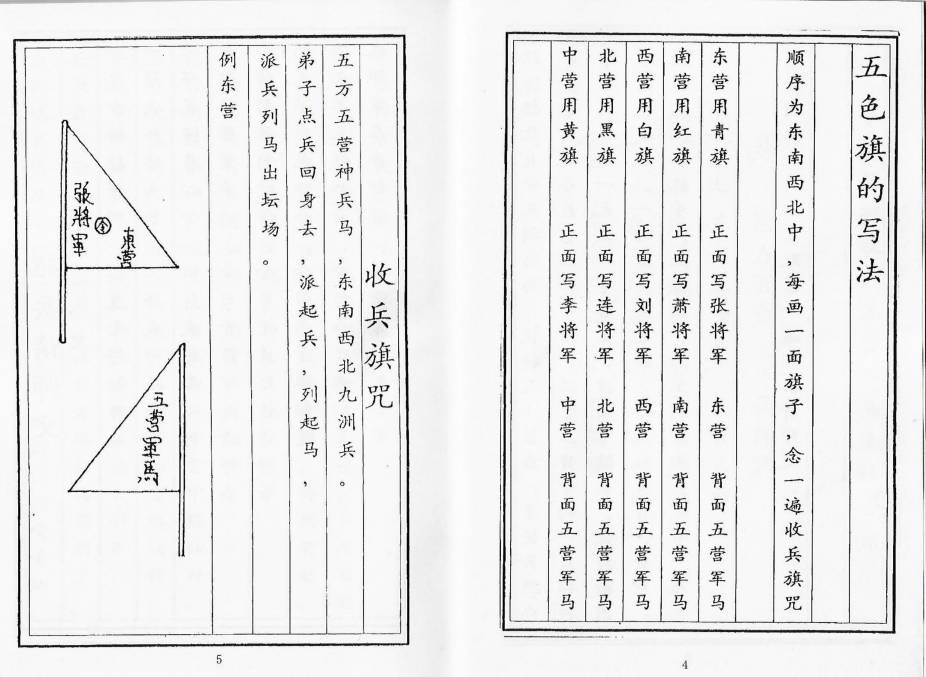 五色旗的写法
顺序为东南西北中，每画一面旗子，念一遍收兵旗咒
东营用青旗 正面写张将军 东营 背面五营军马
南营用红旗 正面写萧将军 南营 背面五营军马
西营用白旗 正面写刘将军 西营 背面五营军马
北营用黑旗 正面写连将军 北营 背面五营军马
中营用黄旗 正面写李将军 中营 背面五营军马
4
收兵旗咒
五方五营神兵马，东南西北九洲兵。
弟子点兵回身去，派起兵，列起马，
派兵列马出坛场。
例东营
東营
令
張將軍
五营軍馬
5